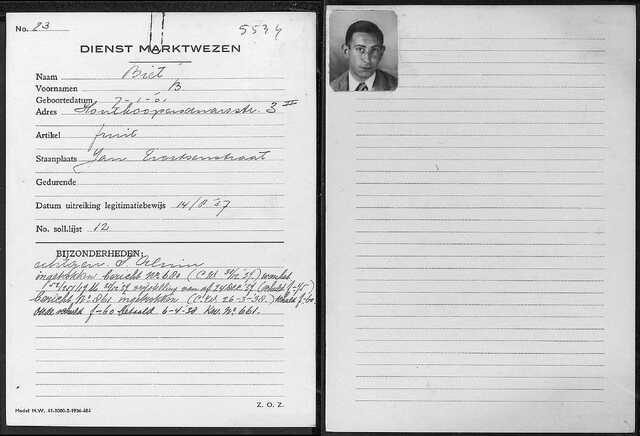 No. 23
5534
DIENST MARKTWEZEN
Naam Biet
Voornamen B
Geboortedatum 7-1-01
Adres Houtkoopersdwarsstr. 3 II
Artikel fruit
Staanplaats Jan Evertsenstraat
Gedurende
Datum uitreiking legitimatiebewijs 14/8 '37
No. soll.lijst 12
BIJZONDERHEDEN:
ingetrokken bericht No 680
vrijstelling van af 24 Dec '37
bericht No 861 ingetrokken (C.V. 26-3-'38)
f-60 betaald 6-4-38 Kw. No 661.
Model M.W. 41-3000-2-1936-484
Z. O. Z.